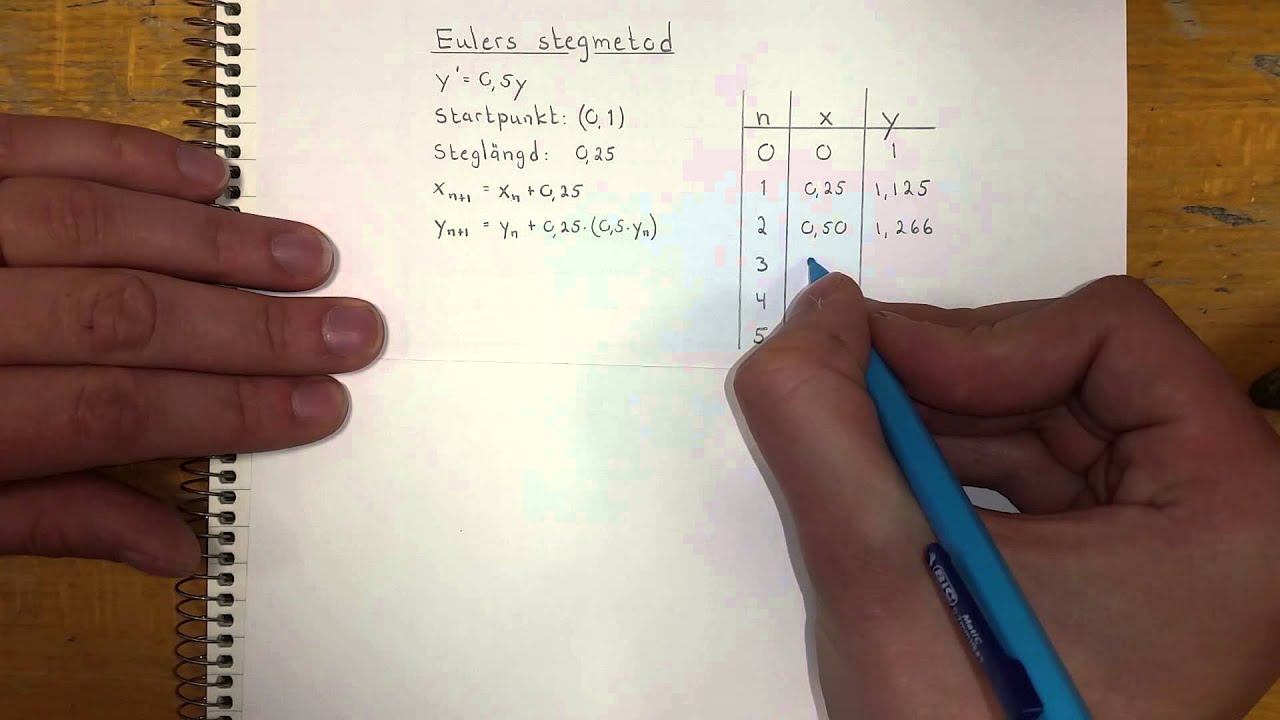 Eulers stegmetod
y' = 0,5y
Startpunkt: (0,1)
Steglängd: 0,25
xₙ₊₁ = xₙ + 0,25
yₙ₊₁ = yₙ + 0,25·(0,5·yₙ)
n x y
0 0 1
1 0,25 1,125
2 0,50 1,266
3
4
5
BIC
Matic